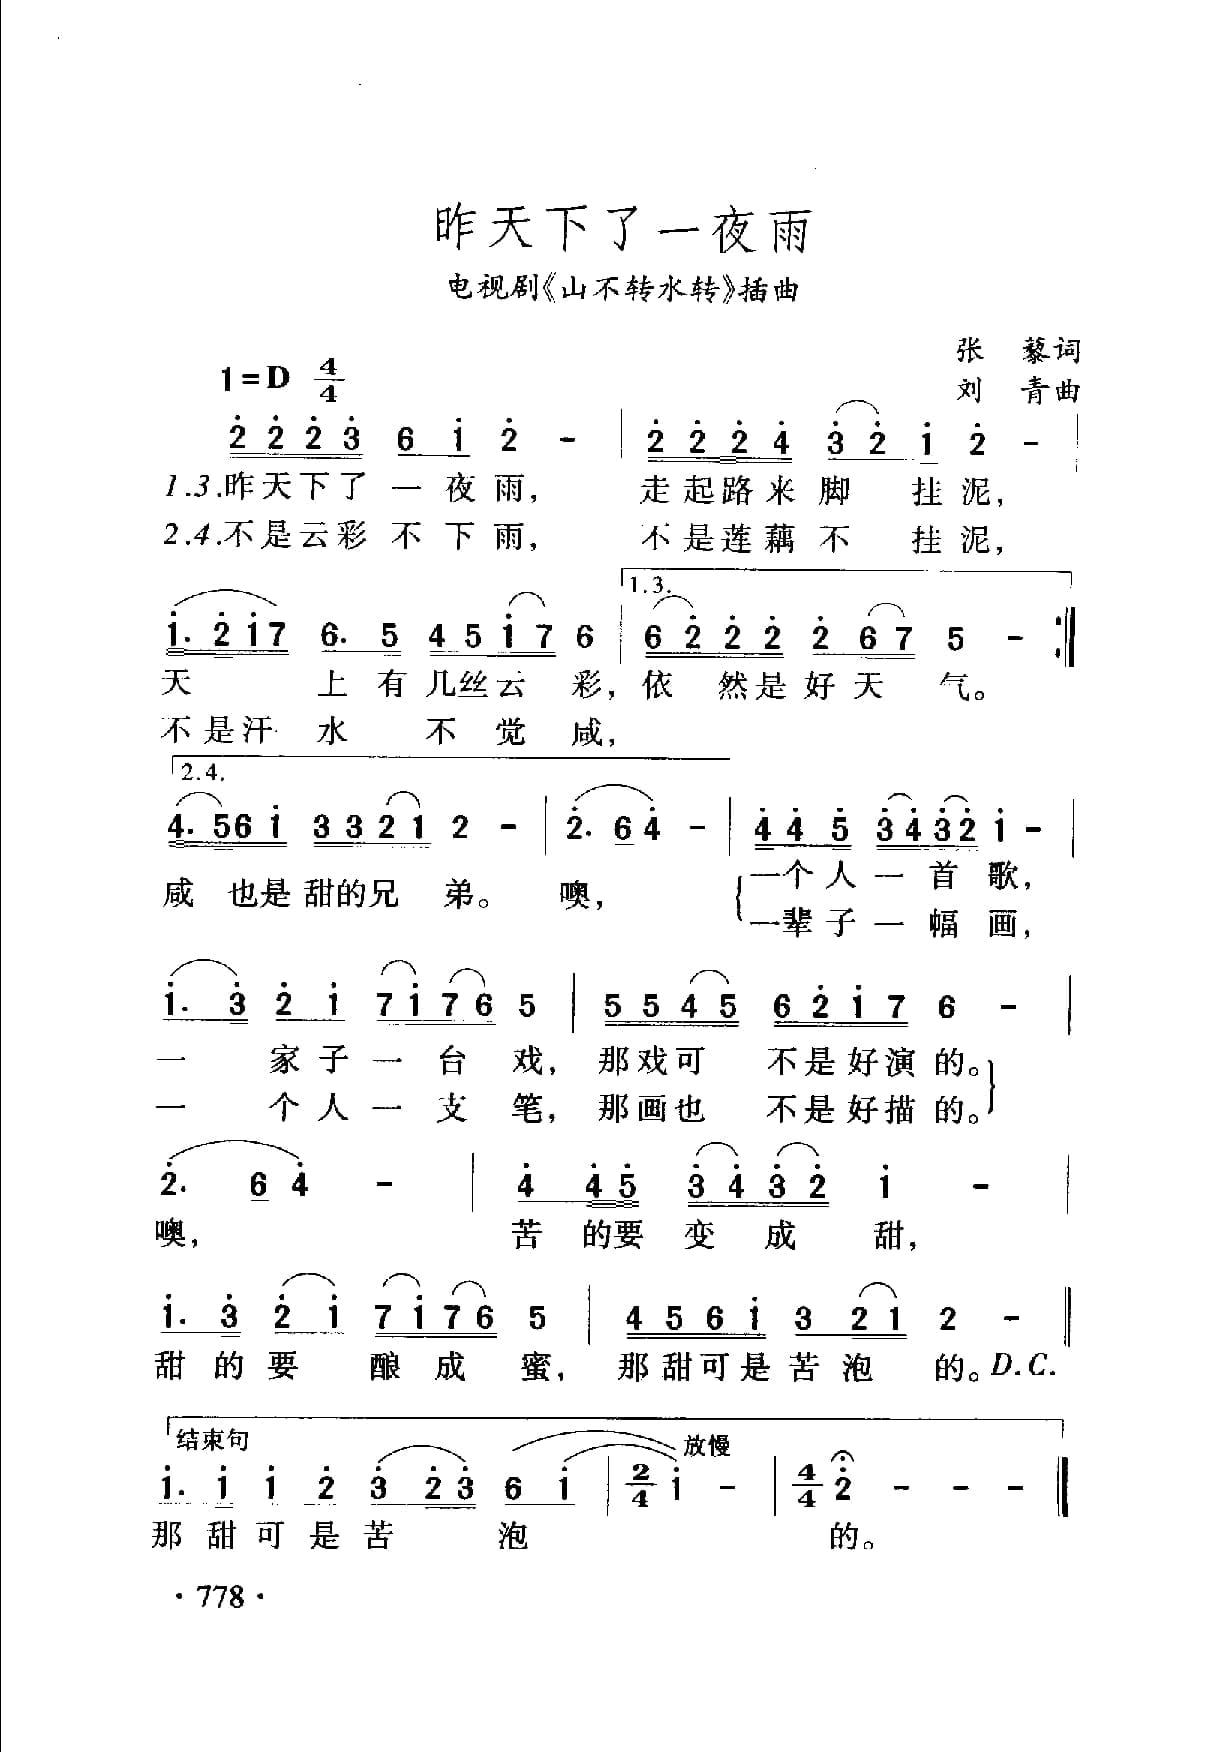 昨天下了一夜雨
电视剧《山不转水转》插曲
张　藜词
1=D 4/4
刘　青曲
2 2 2 3 6 1 2 - | 2 2 2 4 3 2 1 2 - |
1.3.昨天下了一夜雨， 走起路来脚 挂泥，
2.4.不是云彩不下雨， 不是莲藕不 挂泥，
1.3.
1. 2 1 7 6. 5 4 5 1 7 6 | 6 2 2 2 2 6 7 5 - :||
天 上有几丝云 彩，依 然是好天 气。
不是汗水 不 觉 咸，
2.4.
4. 5 6 1 3 3 2 1 2 - | 2. 6 4 - | 4 4 5 3 4 3 2 1 - |
咸 也是甜的兄 弟。 噢， 一个人一首歌，
一辈子一幅画，
1. 3 2 1 7 1 7 6 5 | 5 5 4 5 6 2 1 7 6 - |
一 家子一台 戏，那戏可 不是好演的。
一 个人一支 笔，那画也 不是好描的。
2. 6 4 - | 4 4 5 3 4 3 2 1 - |
噢， 苦 的要变成 甜，
1. 3 2 1 7 1 7 6 5 | 4 5 6 1 3 2 1 2 - ||
甜的要 酿成 蜜，那甜可是苦泡 的。D.C.
结束句 放慢
1. 1 1 2 3 2 3 6 1 | 2/4 1 - | 4/4 2 - - - ||
那甜可是苦 泡 的。
·778·